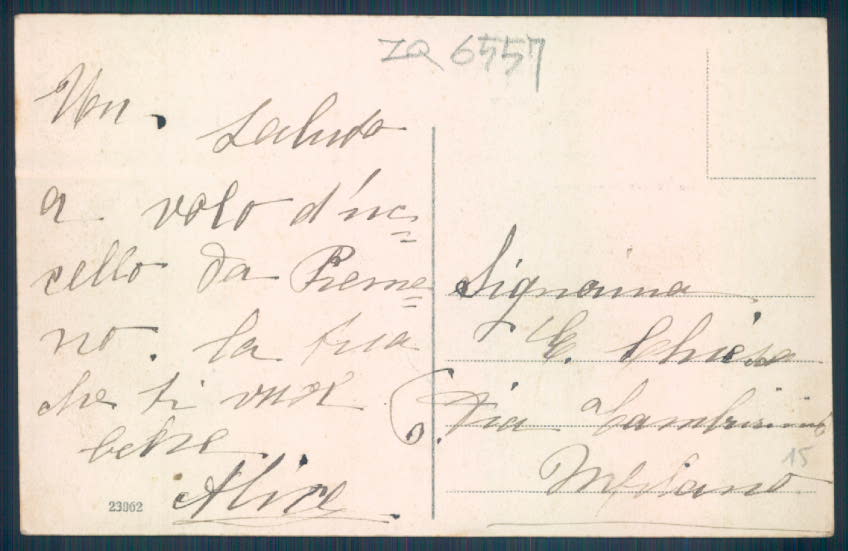 ZQ 6557
Un saluto
a volo d'uc=
cello da Preme=
no. la tua
che ti vuol
bene
Alice
23062
Signorina
E. Chiesa
6. Via
Milano
15